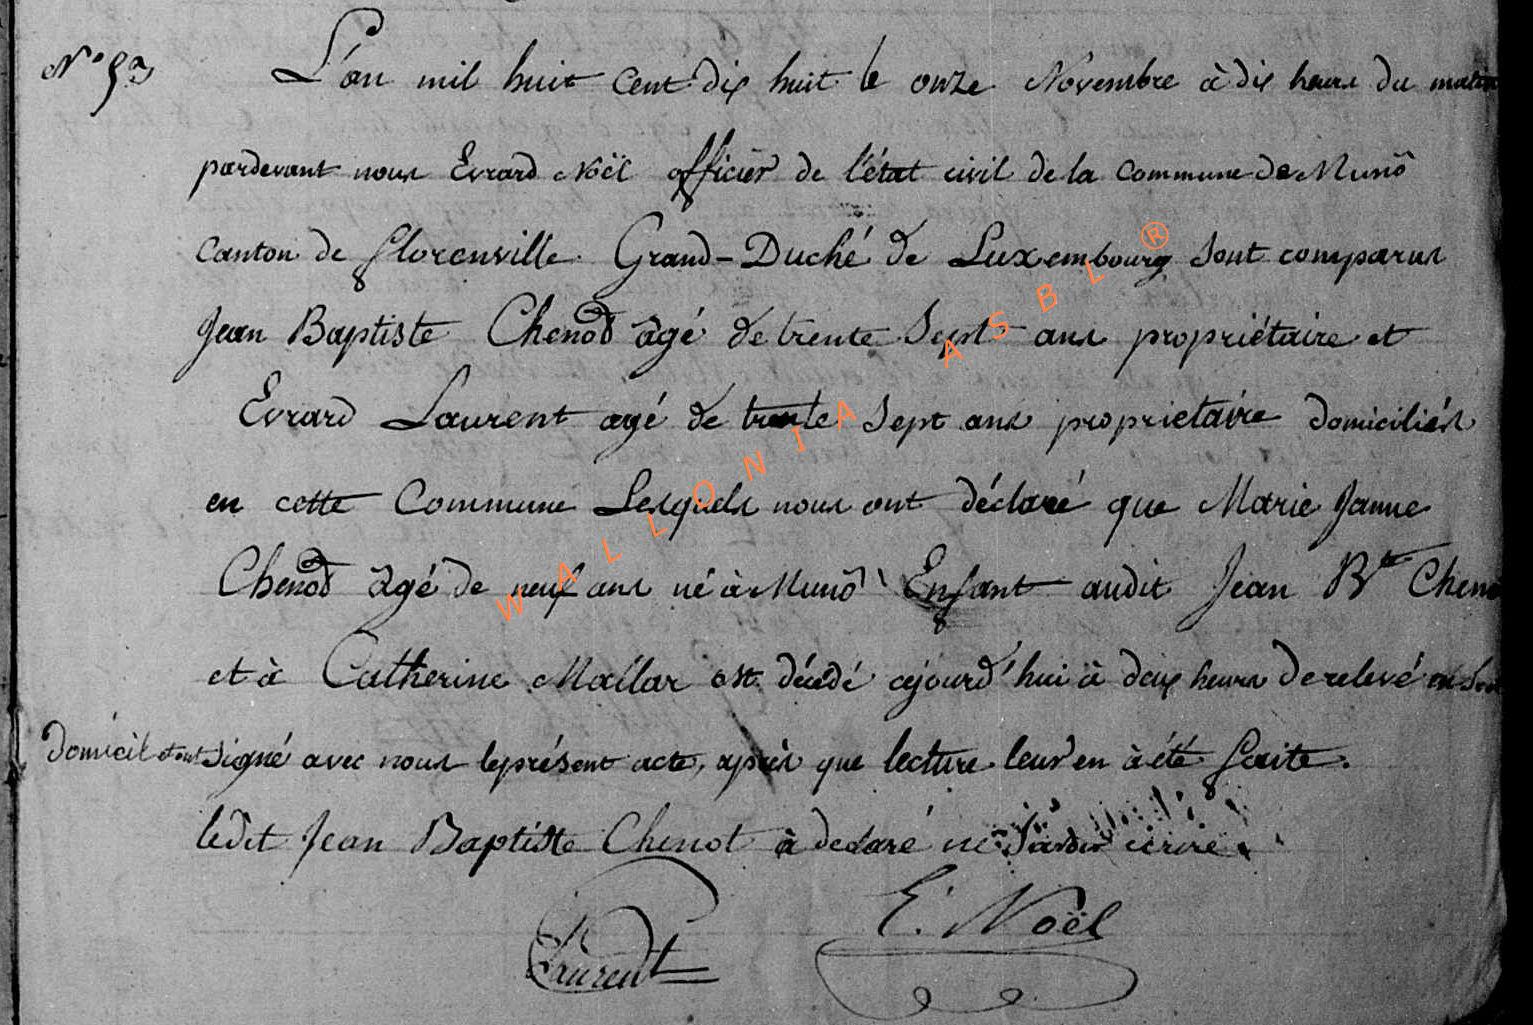 N° 52
L'an mil huit cent dix huit le onze Novembre à dix heures du matin
pardevant nous Evrard Noël officier de l'état civil de la Commune de Munô
canton de florenville Grand-Duché de Luxembourg sont comparus
Jean Baptiste Chenot âgé de trente Sept ans propriétaire et
Evrard Laurent agé de trente Sept ans proprietaire domiciliés
en cette Commune Lesquels nous ont déclaré que Marie Janne
Chenot âgé de neuf ans né à Munô Enfant audit Jean Bte Cheno
et à Catherine Mallar est décédé cejourd'hui à deux heures de relevé en son
domicil et ont signé avec nous le présent acte, après que lecture leur en à été faite.
ledit Jean Baptiste Chenot à declaré ne Savoir écrire
Laurent
E. Noël
WALLONIA ASBL ®